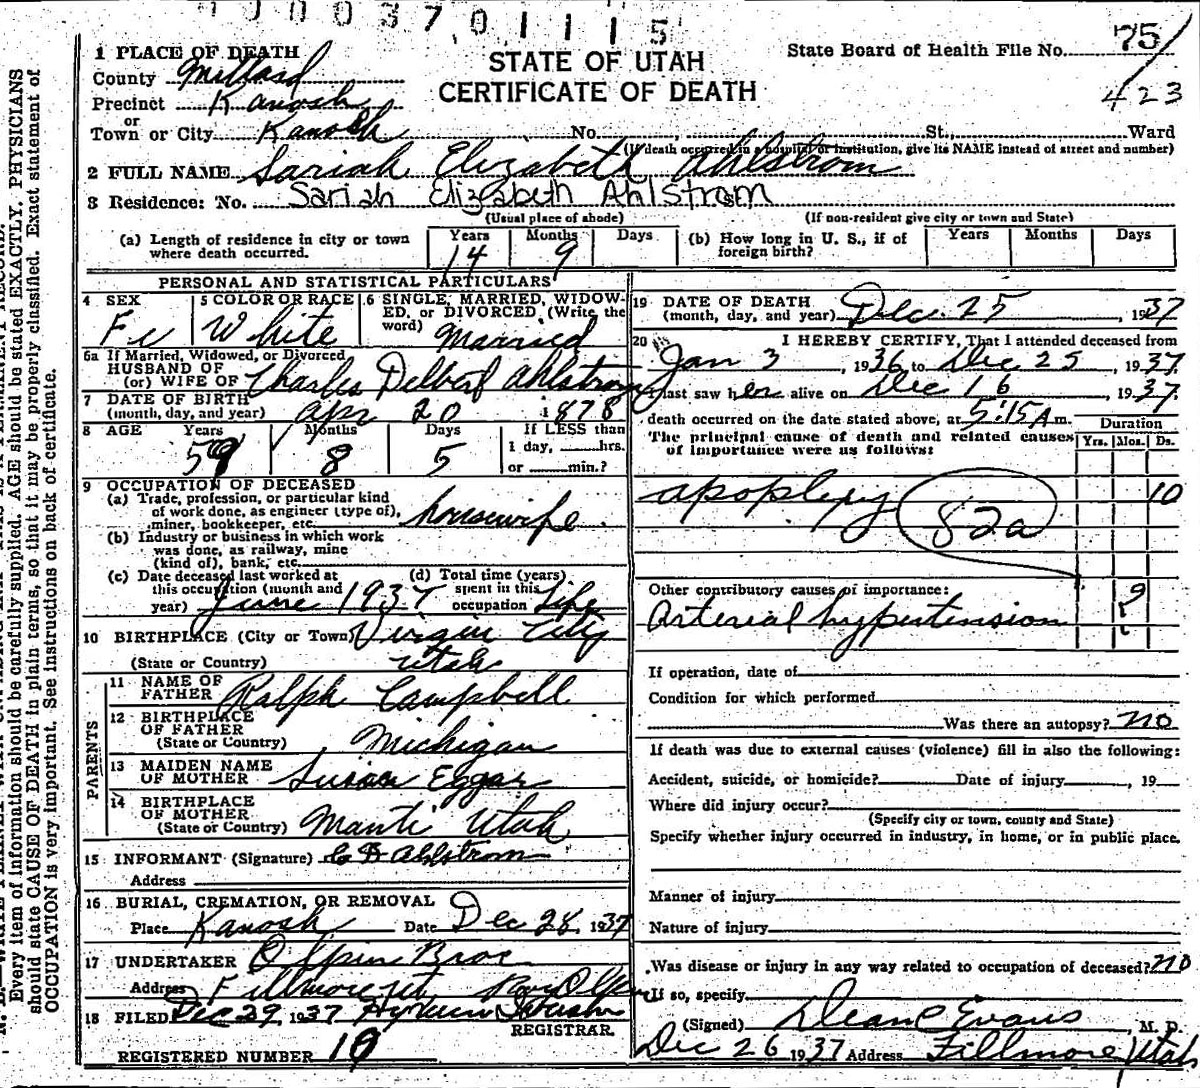 0003701115
1 PLACE OF DEATH
County Millard
Precinct Kanosh
or
Town or City Kanosh No. St. Ward
(If death occurred in a hospital or institution, give its NAME instead of street and number)
STATE OF UTAH
CERTIFICATE OF DEATH
State Board of Health File No. 75
423
2 FULL NAME Sariah Elizabeth Ahlstrom
3 Residence: No. Sariah Elizabeth Ahlstrom
(Usual place of abode) (If non-resident give city or town and State)
(a) Length of residence in city or town where death occurred. Years 14 Months 9 Days
(b) How long in U. S., if of foreign birth? Years Months Days
PERSONAL AND STATISTICAL PARTICULARS
4 SEX Fe
5 COLOR OR RACE White
6 SINGLE, MARRIED, WIDOWED, or DIVORCED, (Write the word) Married
6a If Married, Widowed, or Divorced
HUSBAND OF
(or) WIFE OF Charles Delbert Ahlstrom
7 DATE OF BIRTH
(month, day, and year) Apr 20 1878
8 AGE Years 59 Months 8 Days 5 If LESS than 1 day, hrs. or min.?
9 OCCUPATION OF DECEASED
(a) Trade, profession, or particular kind of work done, as engineer (type of), miner, bookkeeper, etc. housewife
(b) Industry or business in which work was done, as railway, mine (kind of), bank, etc.
(c) Date deceased last worked at this occupation (month and year) June 1937
(d) Total time (years) spent in this occupation Life
10 BIRTHPLACE (City or Town) Virgin City
(State or Country) Utah
PARENTS
11 NAME OF FATHER Ralph Campbell
12 BIRTHPLACE OF FATHER
(State or Country) Michigan
13 MAIDEN NAME OF MOTHER Susan Eggar
14 BIRTHPLACE OF MOTHER
(State or Country) Manti Utah
15 INFORMANT (Signature) C D Ahlstrom
Address
16 BURIAL, CREMATION, OR REMOVAL
Place Kanosh Date Dec 28, 1937
17 UNDERTAKER Olpin Bros
Address Fillmore, Ut Roy Olpin
18 FILED Dec 29, 1937
REGISTRAR.
REGISTERED NUMBER 10
19 DATE OF DEATH
(month, day, and year) Dec. 25, 1937
20 I HEREBY CERTIFY, That I attended deceased from
Jan 3, 1936 to Dec 25, 1937.
I last saw her alive on Dec 16, 1937.
death occurred on the date stated above, at 5:15 A m.
The principal cause of death and related causes of importance were as follows:
Duration
Yrs. Mos. Ds.
apoplexy 82a 10
Other contributory causes of importance:
Arterial hypertension ?
If operation, date of
Condition for which performed
Was there an autopsy? no
If death was due to external causes (violence) fill in also the following:
Accident, suicide, or homicide? Date of injury , 19
Where did injury occur?
(Specify city or town, county and State)
Specify whether injury occurred in industry, in home, or in public place.
Manner of injury
Nature of injury
Was disease or injury in any way related to occupation of deceased? no
If so, specify
(Signed) Dean C Evans, M. D.
Dec 26 1937 Address Fillmore, Utah
Every item of information should be carefully supplied. AGE should be stated EXACTLY. PHYSICIANS
should state CAUSE OF DEATH in plain terms, so that it may be properly classified. Exact statement of
OCCUPATION is very important. See instructions on back of certificate.